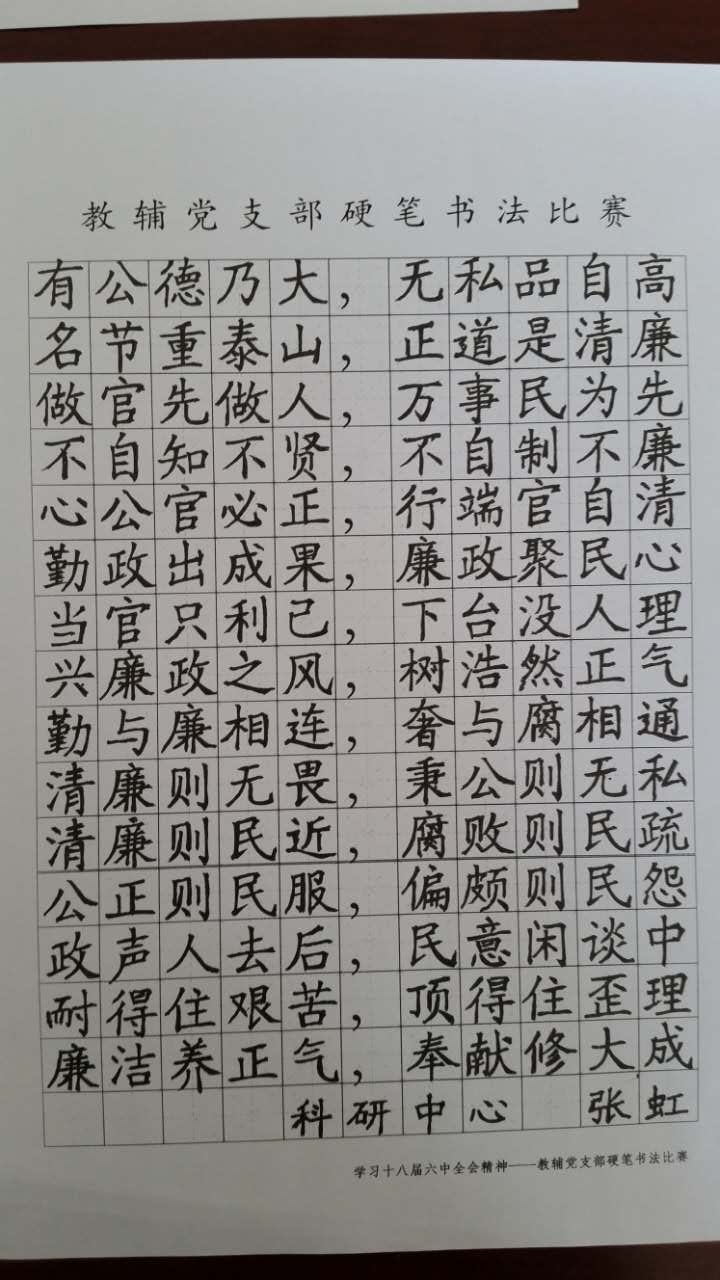 教辅党支部硬笔书法比赛
有公德乃大，无私品自高
名节重泰山，正道是清廉
做官先做人，万事民为先
不自知不贤，不自制不廉
心公官必正，行端官自清
勤政出成果，廉政聚民心
当官只利己，下台没人理
兴廉政之风，树浩然正气
勤与廉相连，奢与腐相通
清廉则无畏，秉公则无私
清廉则民近，腐败则民疏
公正则民服，偏颇则民怨
政声人去后，民意闲谈中
耐得住艰苦，顶得住歪理
廉洁养正气，奉献修大成
科研中心 张虹
学习十八届六中全会精神——教辅党支部硬笔书法比赛